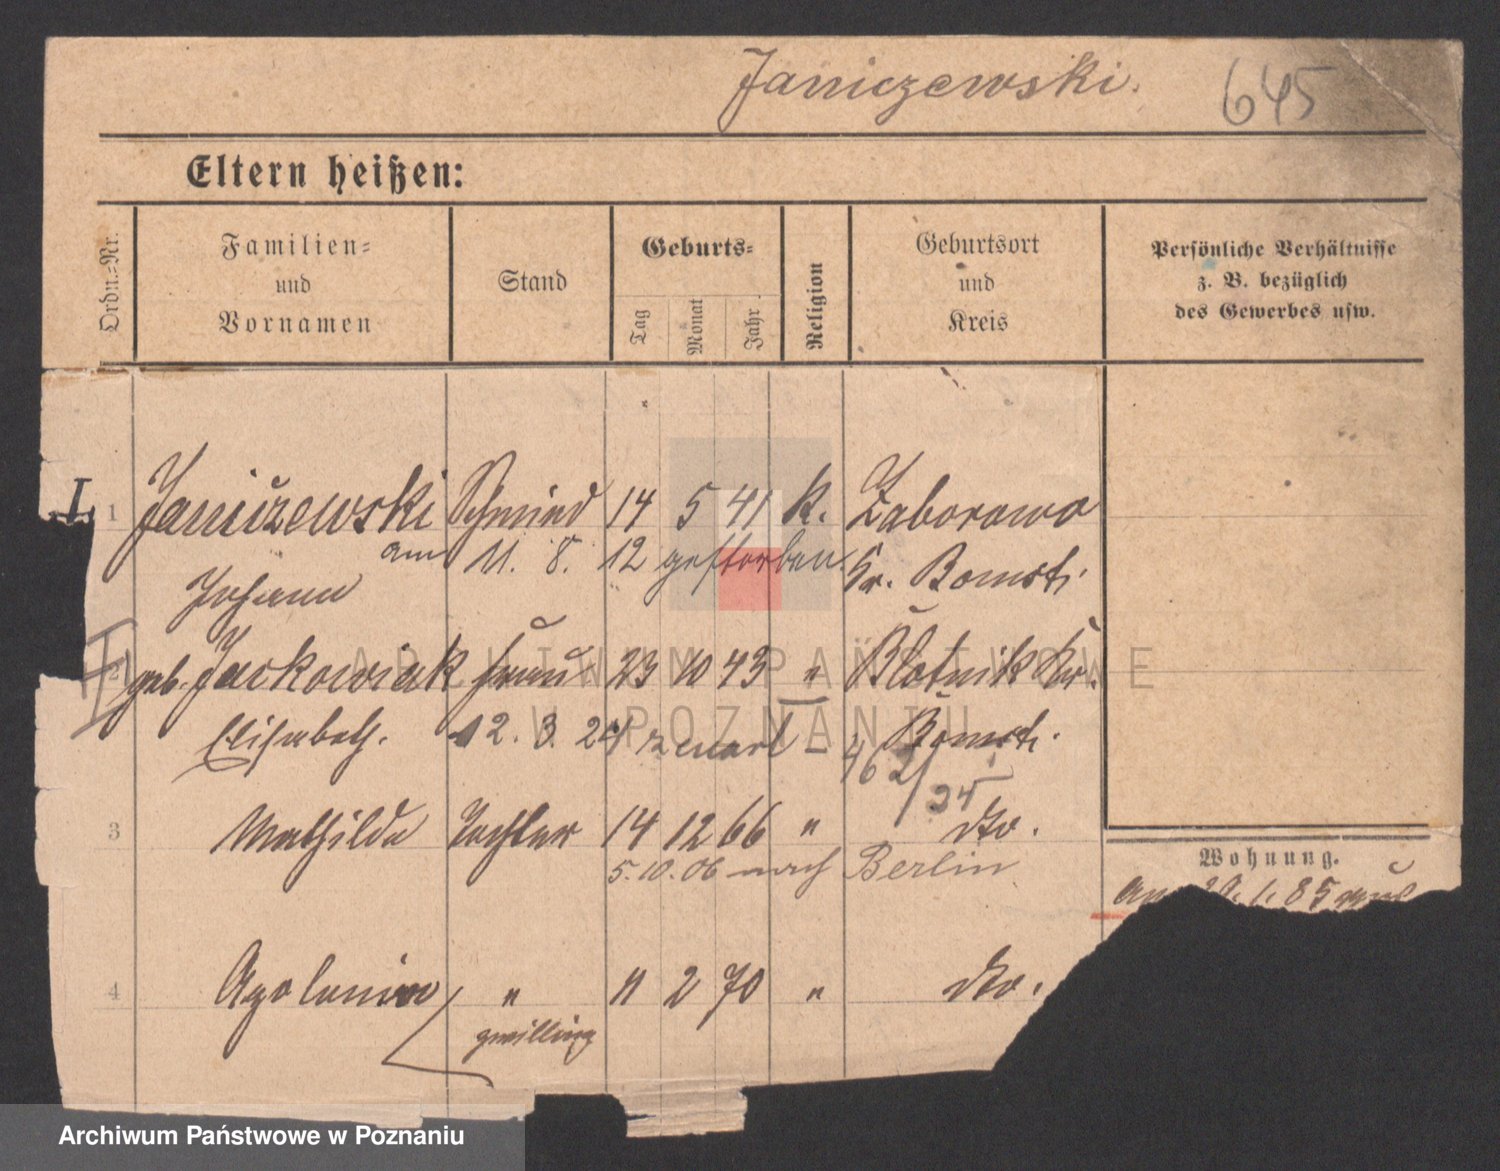 Janiczewski.
645
Eltern heißen:
Ordn.=Nr.
Familien=
und
Vornamen
Stand
Geburts=
Tag
Monat
Jahr
Religion
Geburtsort
und
Kreis
Persönliche Verhältnisse
z. B. bezüglich
des Gewerbes usw.
I. 1 Janiczewski Schmied 14 5 41 K. Zaborowo
am 11. 8. 12 gestorben. Kr. Bomst.
Johann
II 2 geb. Jackowiak Frau 23 10 43 " Blotnik Kr.
Elisabeth. 12. 3. 24 Bomst.
3 Mathilda Tochter 14 12 66 " dto.
5. 10. 06 nach Berlin
Wohnung.
4 Apolonia " 11 2 70 " dto.
zwilling
ARCHIWUM PAŃSTWOWE
W POZNANIU
Archiwum Państwowe w Poznaniu